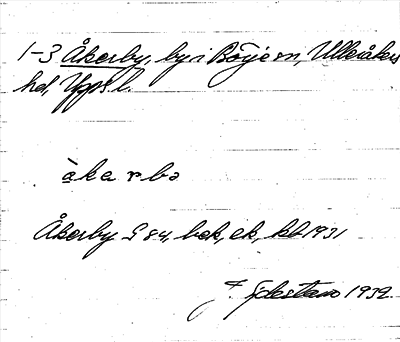 1-3 Åkerby, by i Börje sn, Ulleråkers
hd, Upps. l.
åkerbə
Åkerby G 84, bok, ek, kb 1931
F. Hedestam 1932.